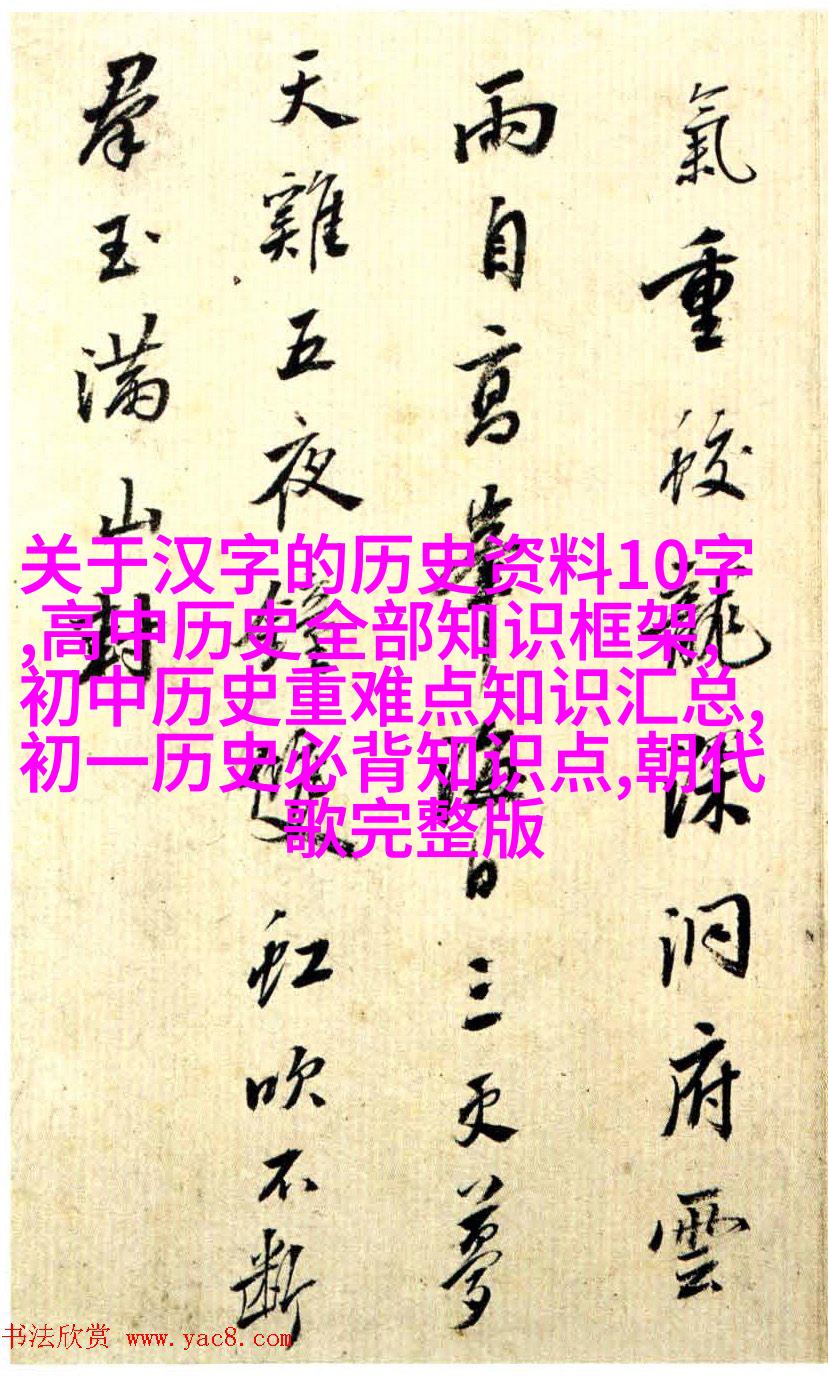 氣重蛟龍深洞府雲
雨自高峯日三更夢
天雞五夜鐘虹吹不斷
羣玉滿山封
关于汉字的历史资料10字
,高中历史全部知识框架,
初中历史重难点知识汇总,
初一历史必背知识点,朝代
歌完整版
书法欣赏 www.yac8.com